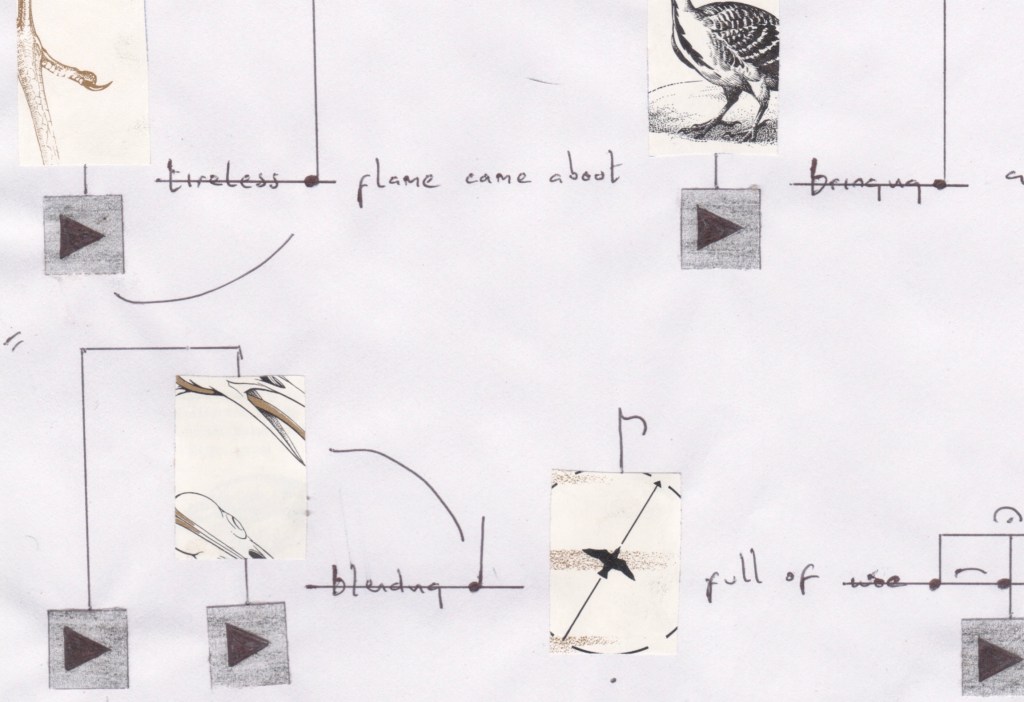 tireless flame came about bringing
blending full of woe